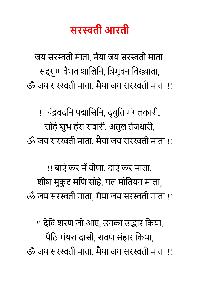 सरस्वती आरती
जय सरस्वती माता, मैया जय सरस्वती माता
सद्गुण वैभव शालिनि, त्रिभुवन विख्याता,
ॐ जय सरस्वती माता, मैया जय सरस्वती माता !!
!! चंद्रवदनि पद्मासिनि, द्युति मंगलकारी,
सोहे शुभ हंस सवारी, अतुल तेजधारी,
ॐ जय सरस्वती माता, मैया जय सरस्वती माता !!
!! बाएं कर में वीणा, दाएं कर माला,
शीश मुकुट मणि सोहे, गल मोतियन माला,
ॐ जय सरस्वती माता, मैया जय सरस्वती माता !!
देवि शरण जो आए, उनका उद्धार किया,
पैठि मंथरा दासी, रावण संहार किया,
ॐ जय सरस्वती माता, मैया जय सरस्वती माता !!